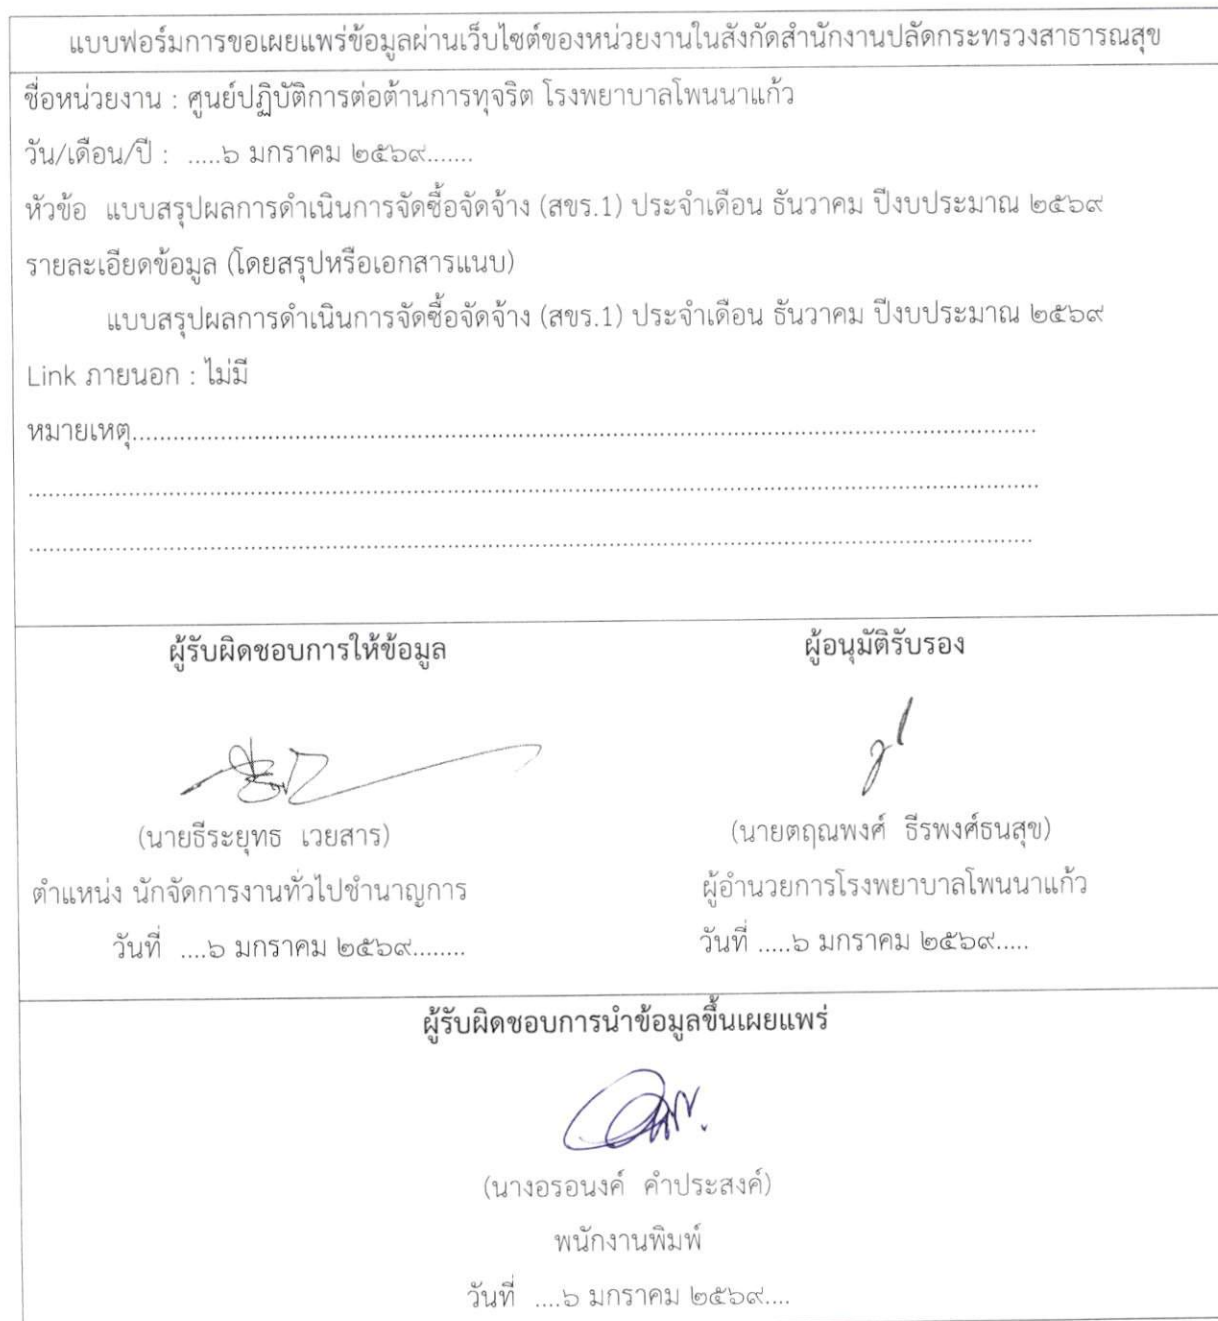 แบบฟอร์มการขอเผยแพร่ข้อมูลผ่านเว็บไซต์ของหน่วยงานในสังกัดสำนักงานปลัดกระทรวงสาธารณสุข
ชื่อหน่วยงาน : ศูนย์ปฏิบัติการต่อต้านการทุจริต โรงพยาบาลโพนนาแก้ว
วัน/เดือน/ปี : .....๖ มกราคม ๒๕๖๙.......
หัวข้อ แบบสรุปผลการดำเนินการจัดซื้อจัดจ้าง (สขร.1) ประจำเดือน ธันวาคม ปีงบประมาณ ๒๕๖๙
รายละเอียดข้อมูล (โดยสรุปหรือเอกสารแนบ)
แบบสรุปผลการดำเนินการจัดซื้อจัดจ้าง (สขร.1) ประจำเดือน ธันวาคม ปีงบประมาณ ๒๕๖๙
Link ภายนอก : ไม่มี
หมายเหตุ....................
ผู้รับผิดชอบการให้ข้อมูล
(นายธีระยุทธ เวยสาร)
ตำแหน่ง นักจัดการงานทั่วไปชำนาญการ
วันที่ ....๖ มกราคม ๒๕๖๙........
ผู้อนุมัติรับรอง
(นายตฤณพงศ์ ธีรพงศ์ธนสุข)
ผู้อำนวยการโรงพยาบาลโพนนาแก้ว
วันที่ .....๖ มกราคม ๒๕๖๙.....
ผู้รับผิดชอบการนำข้อมูลขึ้นเผยแพร่
(นางอรอนงค์ คำประสงค์)
พนักงานพิมพ์
วันที่ ....๖ มกราคม ๒๕๖๙....